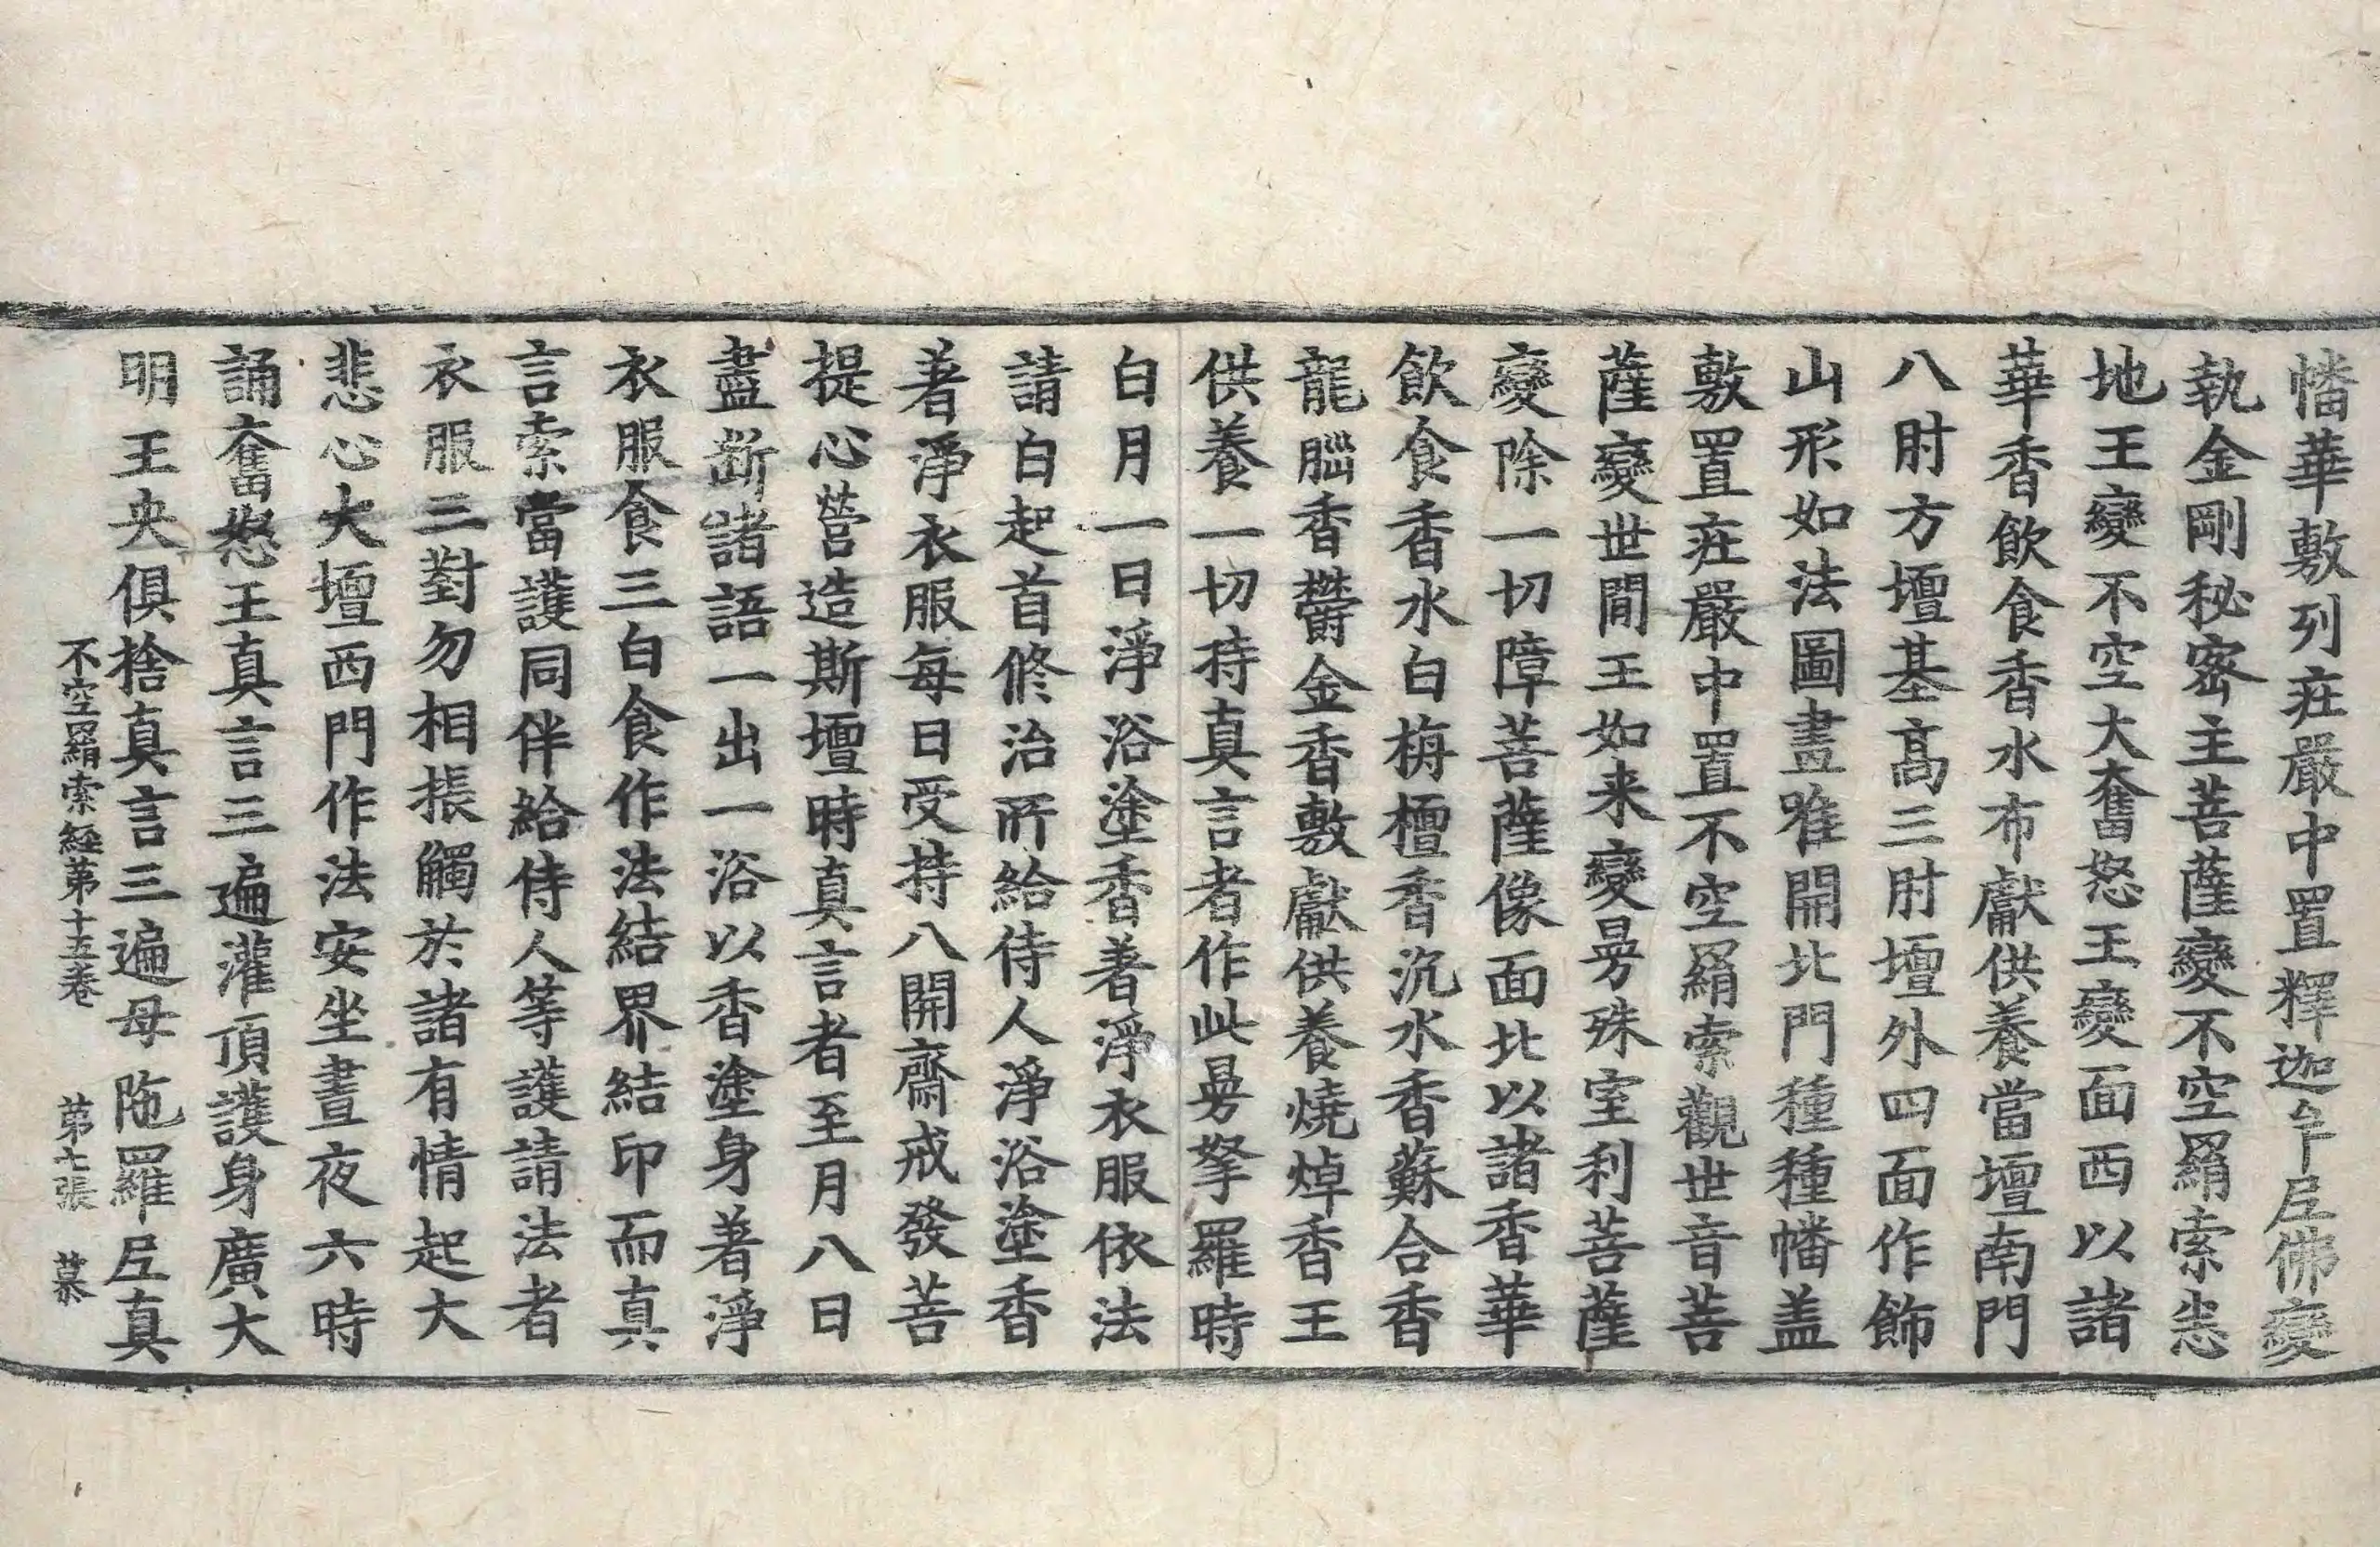 幡華敷列莊嚴中置釋迦牟𡰱佛變
執金剛秘密主菩薩變不空羂索悉
地王變不空大奮怒王變面西以諸
華香飲食香水布獻供養當壇南門
八肘方壇基髙三肘壇外四面作飾
山形如法圖畫唯開北門種種幡盖
敷置莊嚴中置不空羂索觀世音菩
薩變世間王如来變曼殊室利菩薩
變除一切障菩薩像面北以諸香華
飲食香水白栴檀香沉水香蘇合香
龍腦香欝金香敷獻供養燒焯香王
供養一切持真言者作此曼拏羅時
白月一日淨浴塗香著淨衣服依法
請白起首修治所給侍人淨浴塗香
著淨衣服每日受持八關齋戒發菩
提心營造斯壇時真言者至月八日
盡斷諸語一出一浴以香塗身著淨
衣服食三白食作法結界結印而真
言索當護同伴給侍人等護請法者
衣服三對勿相振觸於諸有情起大
悲心大壇西門作法安坐晝夜六時
誦奮怒王真言三遍灌頂護身廣大
明王央俱捨真言三遍母陁羅𡰱真
不空羂索經第十五卷　第七張　慕